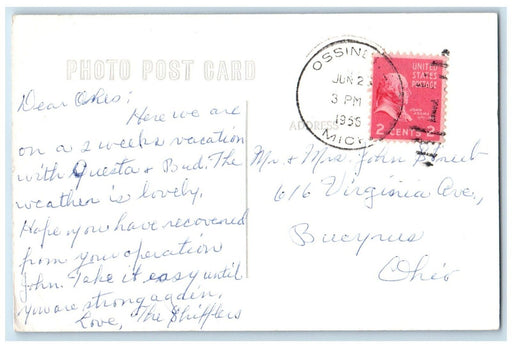 PHOTO POST CARD
Dear Ones;
Here we are
on a 2 weeks vacation
with Questa & Bud. The
weather is lovely.
Hope you have recovered
from your operation
John. Take it easy until
you are strong again.
Love, The Shifflers
OSSINE
JUN 2
3 PM
1955
MICH
UNITED
STATES
POSTAGE
2 CENTS 2
ADDRESS
Mr. & Mrs. John
616 Virginia Ave.,
Bucyrus
Ohio